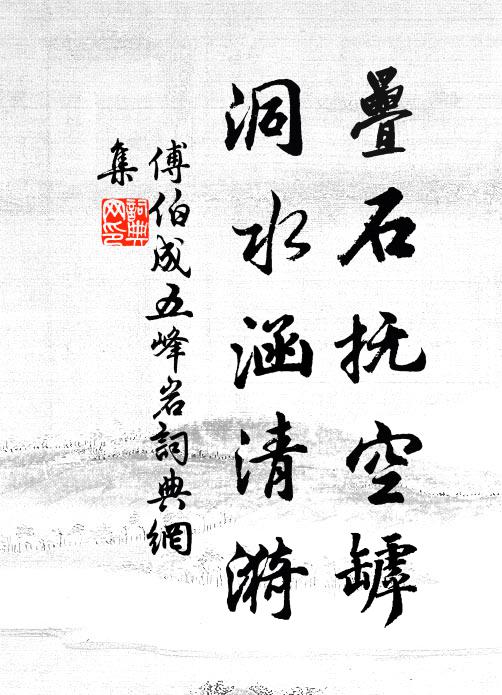 疊石抚空罅
洞水涵清漪
傅伯成五峰岩詞典網
集
詞典
网印